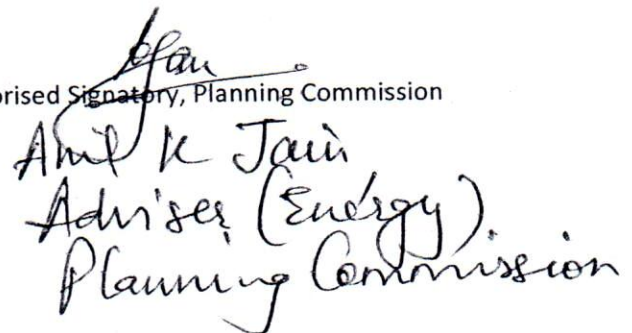 orised Signatory, Planning Commission
Anil K Jain
Adviser (Energy)
Planning Commission